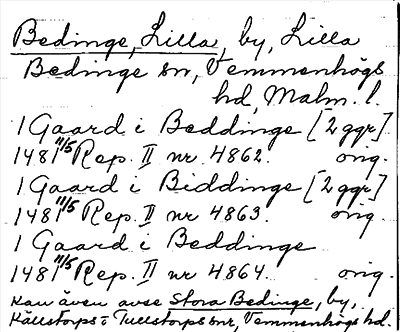 Bedinge, Lilla, by, Lilla
Bedinge sn, Vemmenhögs
hd, Malm. l.
1 Gaard i Beddinge [2 ggr].
1481 11/5 Rep. II nr 4862. orig.
1 Gaard i Biddinge [2 ggr]
1481 11/5 Rep. II nr 4863. orig.
1 Gaard i Beddinge
1481 11/5 Rep. II nr 4864. orig.
Kan även avse Stora Bedinge, by,
Källstorps o Tullstorps snr, Vemmenhögs hd.